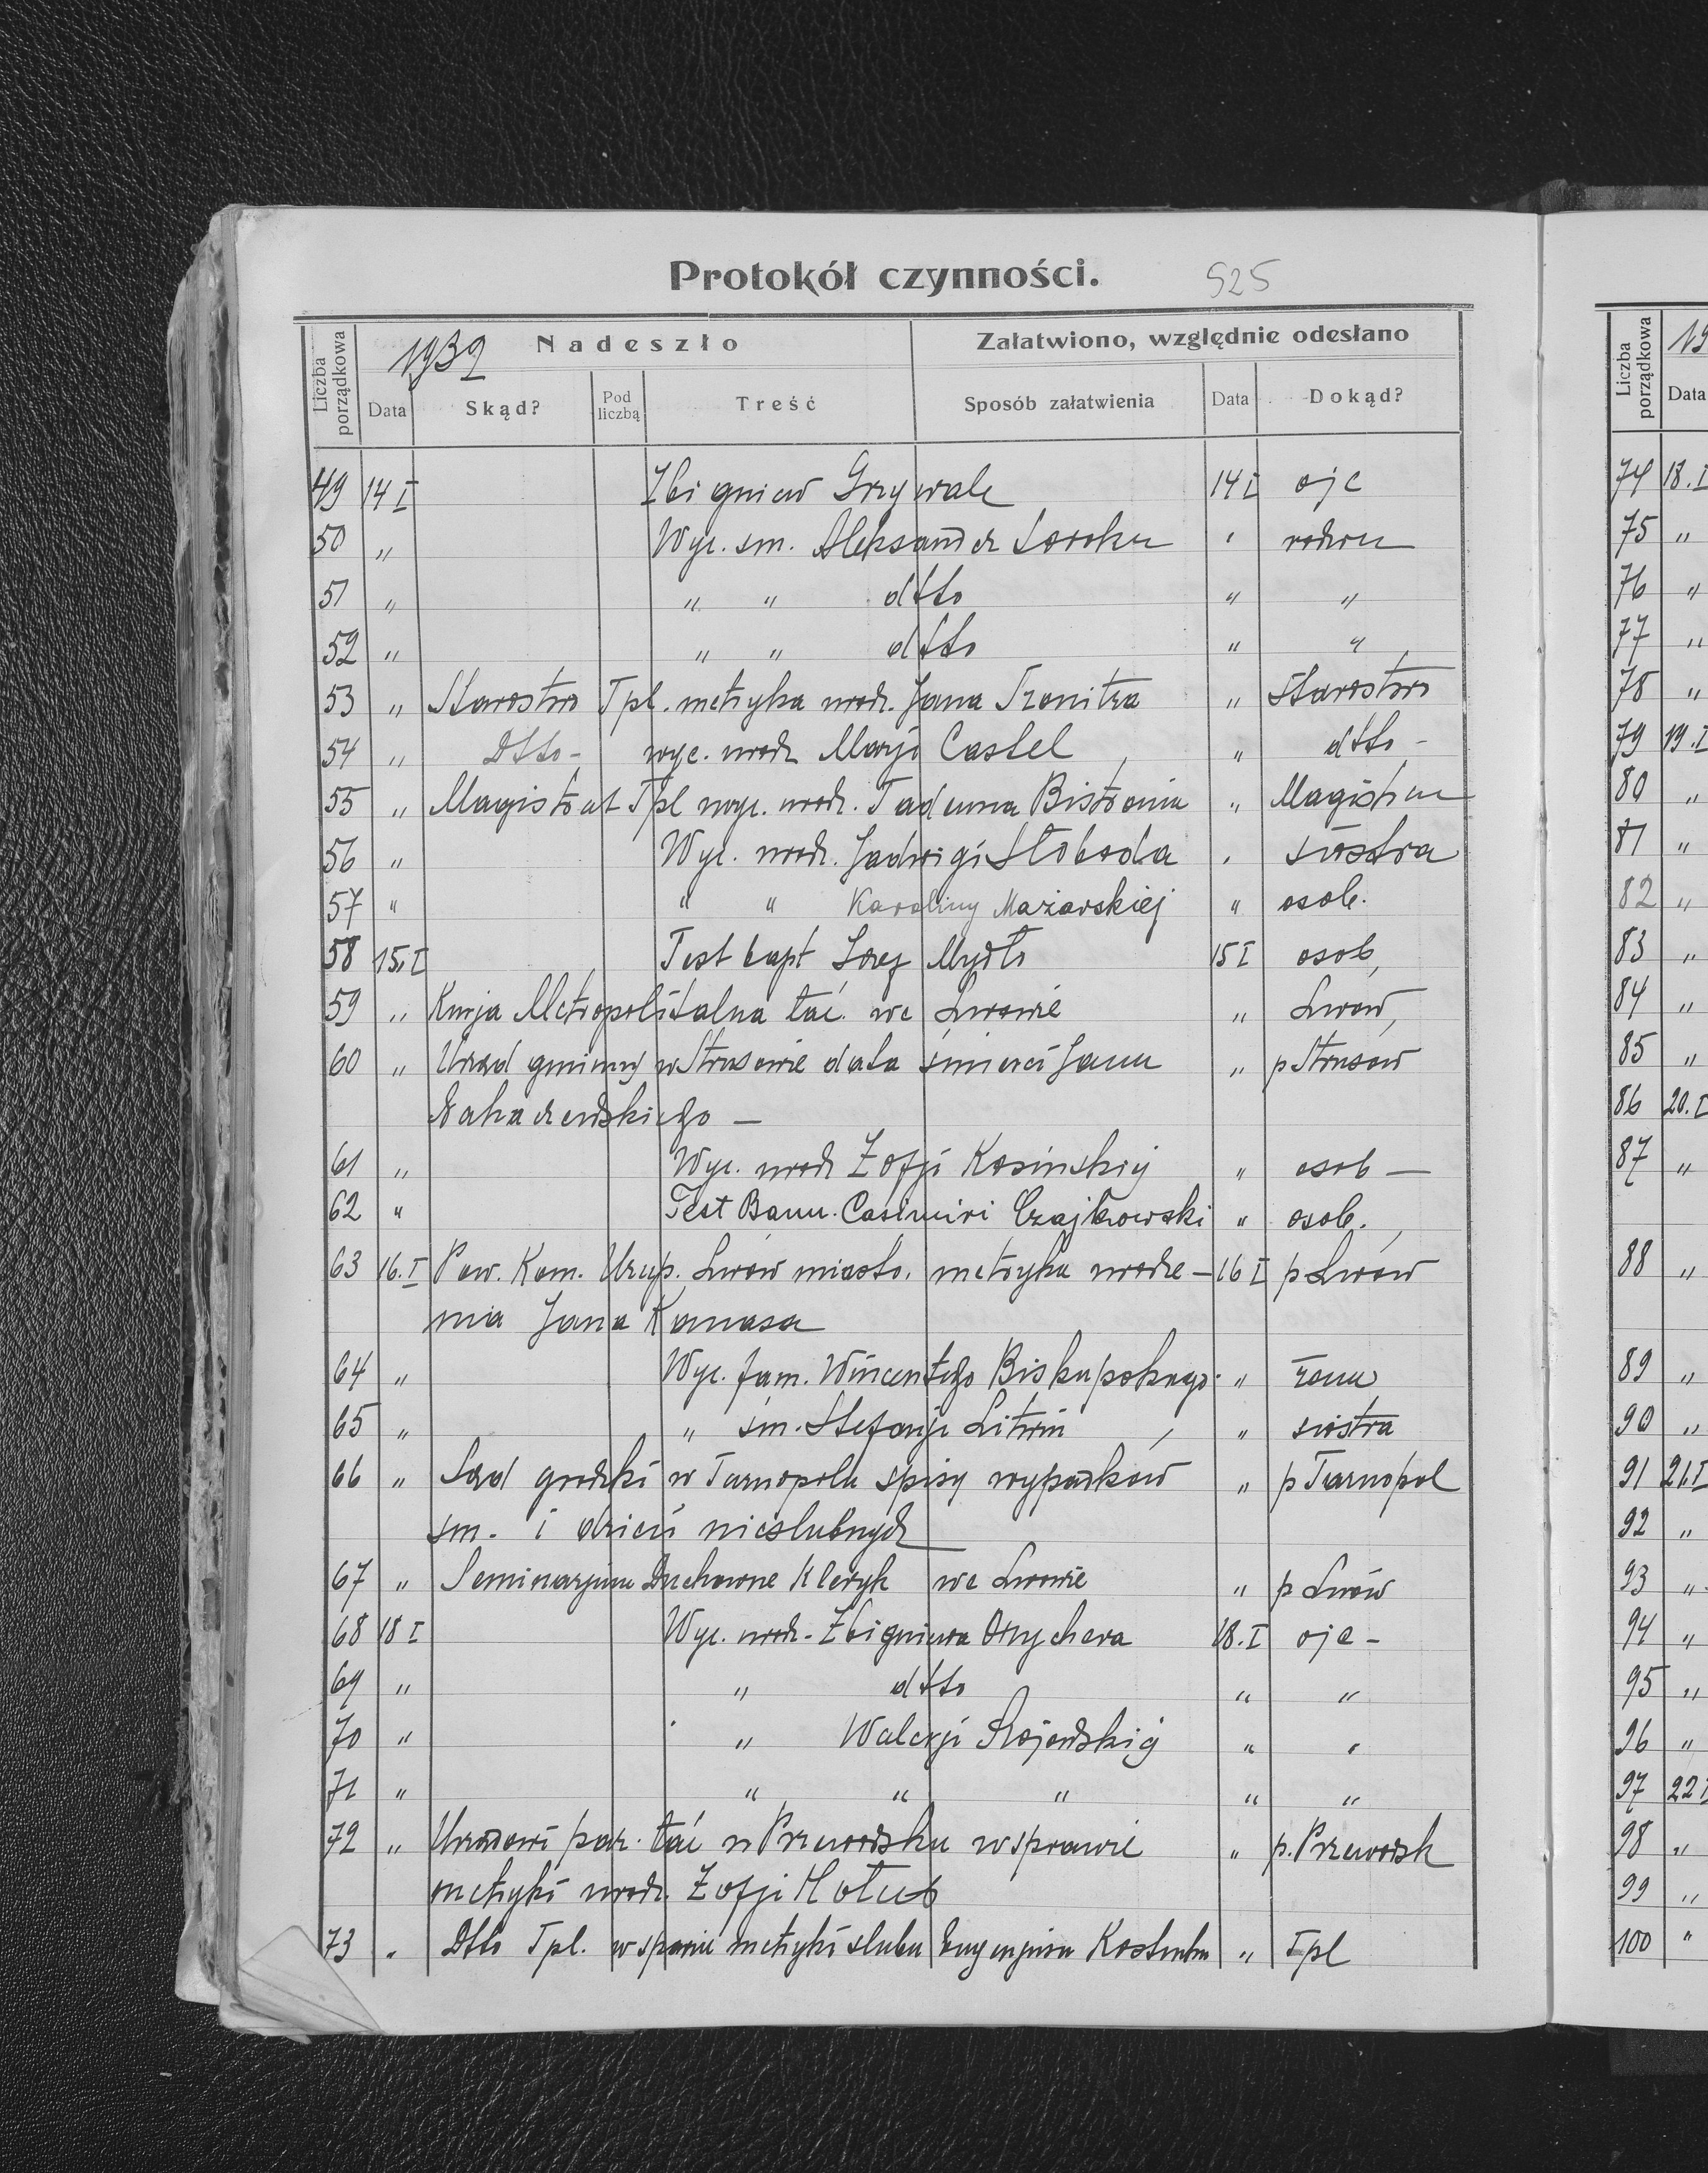 Protokół czynności. 525
Liczba porządkowa
1939 Nadeszło
Załatwiono, względnie odesłano
Data Skąd? Pod liczbą Treść Sposób załatwienia Data Dokąd?
49 14 I Zbigniew 14 I ojc
50 " Wyc. sm. "
51 " " " dtto " "
52 " " " dtto " "
53 " Starostwo Tpl. metryka urodz. Jana " Starostwo
54 " Dtto - wyc. urodz Marji Castel " dtto -
55 " Magistrat Tpl wyc. urodz. "
56 " Wyc. urodz. Jadwigi Słoboda " siostra
57 " " " Karoliny Mazarskiej " osob.
58 15.I Test bapt Mydło 15 I osob,
59 " Kurja Metropolitalna łać. we Lwowie " Lwow,
60 " Urząd gminny w Strusowie data śmierci Jana " p Strusow
61 " Wyc. urodz Zofji Kosinskiej " osob —
62 " Test Bann. Casimiri Czajkowski " osob.
63 16.I Pow. Kom. Uzup. Lwów miasto. metryka urodze- 16 I p Lwow
nia Jana Kanasa
64 " Wyc. fam. Wincentego "
65 " " śm. Stefanji Litwin " siostra
66 " Sąd grodzki w Tarnopolu spisy wypadków " p Tarnopol
sm. i dzieci nieslubnych
67 " Seminarjum Duchowne Kleryk we Lwowie " p Lwów
68 18 I Wyc. urodz. Zbigniewa 18.I ojc -
69 " " dtto " "
70 " " Walerji " "
71 " " " " " "
72 " par. łać w Przeworsku w sprawie " p. Przeworsk
metryki urodz. Zofji Hołub
73 " Dtto Tpl. w sprawie metryki slubu " Tpl
Liczba porządkowa
19
Data
74 18.I
75 "
76 "
77 "
78 "
79 19.I
80 "
81 "
82 "
83 "
84 "
85 "
86 20.I
87 "
88 "
89 "
90 "
91 21.I
92 "
93 "
94 "
95 "
96 "
97 22 I
98 "
99 "
100 "